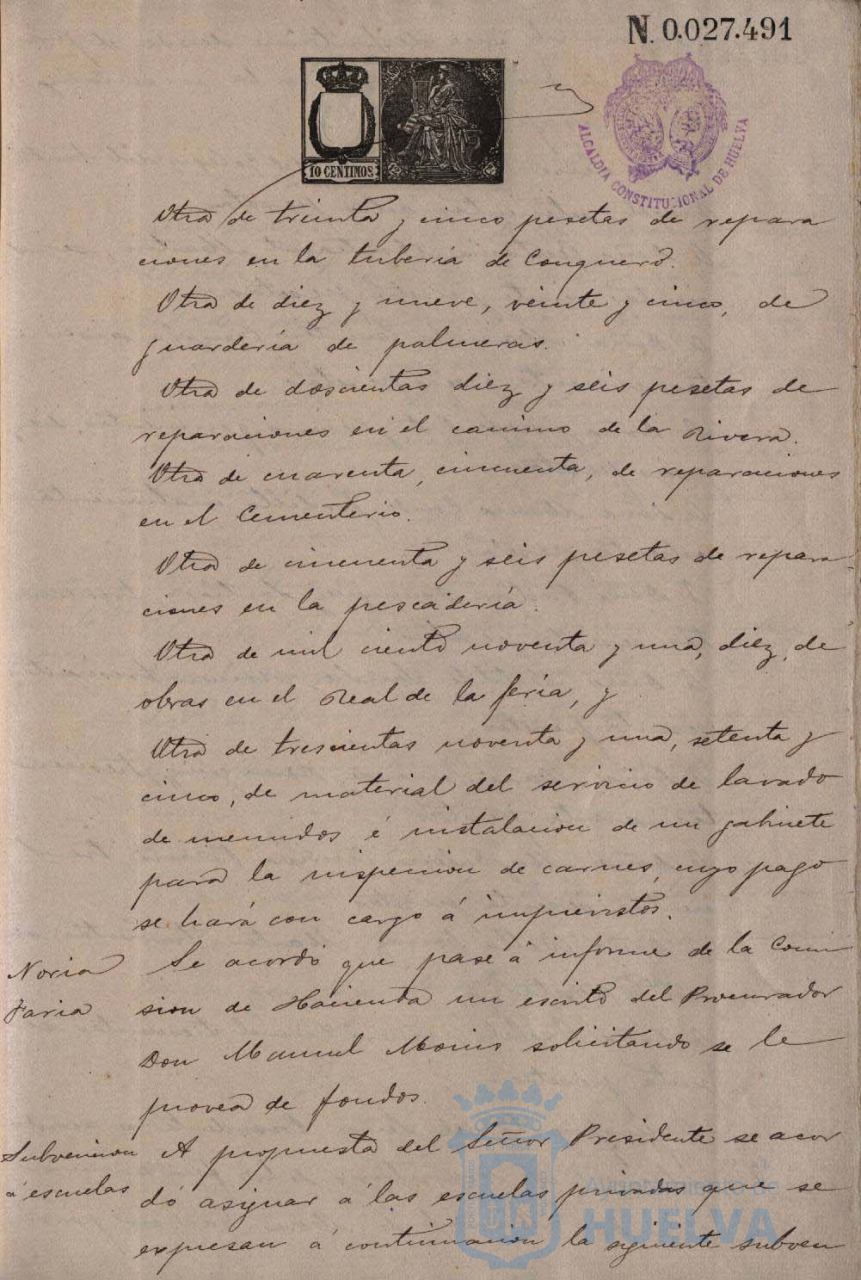 N. 0.027.491
10 CENTIMOS
ALCALDIA CONSTITUCIONAL DE HUELVA
Otra de treinta y cinco pesetas de repara
ciones en la tuberia de Conquero.
Otra de diez y nueve, veinte y cinco, de
guardería de palmeras.
Otra de doscientas diez y seis pesetas de
reparaciones en el camino de la Rivera.
Otra de cuarenta, cincuenta, de reparaciones
en el Cementerio.
Otra de cincuenta y seis pesetas de repara-
ciones en la pescadería.
Otra de mil ciento noventa y una, diez, de
obras en el Real de la feria, y
Otra de trescientas noventa y una, setenta y
cinco, de material del servicio de lavado
de menudos é instalacion de un gabinete
para la inspeccion de carnes, cuyo pago
se hará con cargo á imprevistos.
Noria
Faria
Se acordó que pase á informe de la Comi
sion de Hacienda un escrito del Procurador
Don Manuel solicitando se le
provea de fondos.
Subvencion
á escuelas
A propuesta del Señor Presidente se acor
dó asignar á las escuelas privadas que se
expresan á continuacion la siguiente subven
Ayuntamiento de
HUELVA